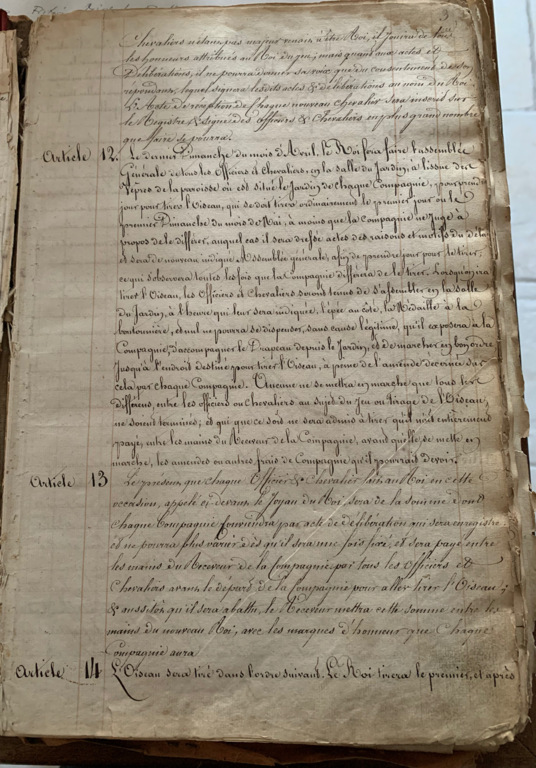 3
Chevaliers n'étant pas majeur venait à être Roi, il jouira de tous
les honneurs attribués au Roi du jeu; mais quant aux actes et
Délibérations, il ne pourra donner sa voix que du consentement de son
répondant, lequel signera lesdits actes & délibérations au nom du Roi.
L'Acte de réception de chaque nouveau Chevalier sera inscrit sur
le Registre & signé des officiers & Chevaliers en plus grand nombre
que faire se pourra.
Article 12. Le dernier Dimanche du mois d'Avril, le Roi fera faire l'assemblée
Générale de tous les Officiers & Chevaliers, en la salle du Jardin, à l'issue des
Vêpres de la paroisse où est situé le Jardin de chaque Compagnie, pour prendre
jour pour tirer l'Oiseau, qui se doit tirer ordinairement le premier jour ou le
premier Dimanche du mois de Mai, à moins que la compagnie ne juge à
propos de le différer, auquel cas il sera dressé actes des raisons et motifs du délai
et sera de nouveau indiqué assemblée générale, afin de prendre jour pour le tirer,
ce qui s'observera toutes les fois que la Compagnie différera de le tirer. Lorsqu'on ira
tirer l'Oiseau, les Officiers & Chevaliers seront tenus de s'assembler en la salle
du Jardin, à l'heure qui leur sera indiquée, l'épée au côté, la Médaille à la
boutonnière, et nul ne pourra se dispenser, sans cause légitime, qu'il exposera à la
Compagnie, d'accompagner le Drapeau depuis le Jardin, et de marcher en bon ordre
jusqu'à l'endroit destiné pour tirer l'Oiseau, à peine de l'amende décernée sur
cela par chaque Compagnie. Aucune ne se mettra en marche que tous les
différens, entre les officiers ou chevaliers au sujet du jeu ou tirage de l'Oiseau,
ne soient terminés, et qui que ce soit ne sera admis à tirer qu'il n'ait entièrement
payé, entre les mains du Receveur de la Compagnie, avant qu'elle se mette en
marche, les amendes ou autres frais de Compagnie qu'il pourrait devoir.
Article 13 Le présent que chaque Officier & Chevalier fait au Roi en cette
occasion, appelé ci-devant le Joyau du Roi, sera de la somme dont
chaque Compagnie conviendra par acte de délibération qui sera enregistré
et ne pourra plus varier dès qu'il sera une fois fixé, et sera payé entre
les mains du Receveur de la Compagnie par tous les Officiers et
Chevaliers avant le départ de la Compagnie pour aller tirer l'Oiseau;
& aussitôt qu'il sera abattu, le Receveur mettra cette somme entre les
mains du nouveau Roi, avec les marques d'honneur que Chaque
Compagnie aura
Article 14 L'Oiseau sera tiré dans l'ordre suivant. Le Roi tirera le premier, et après